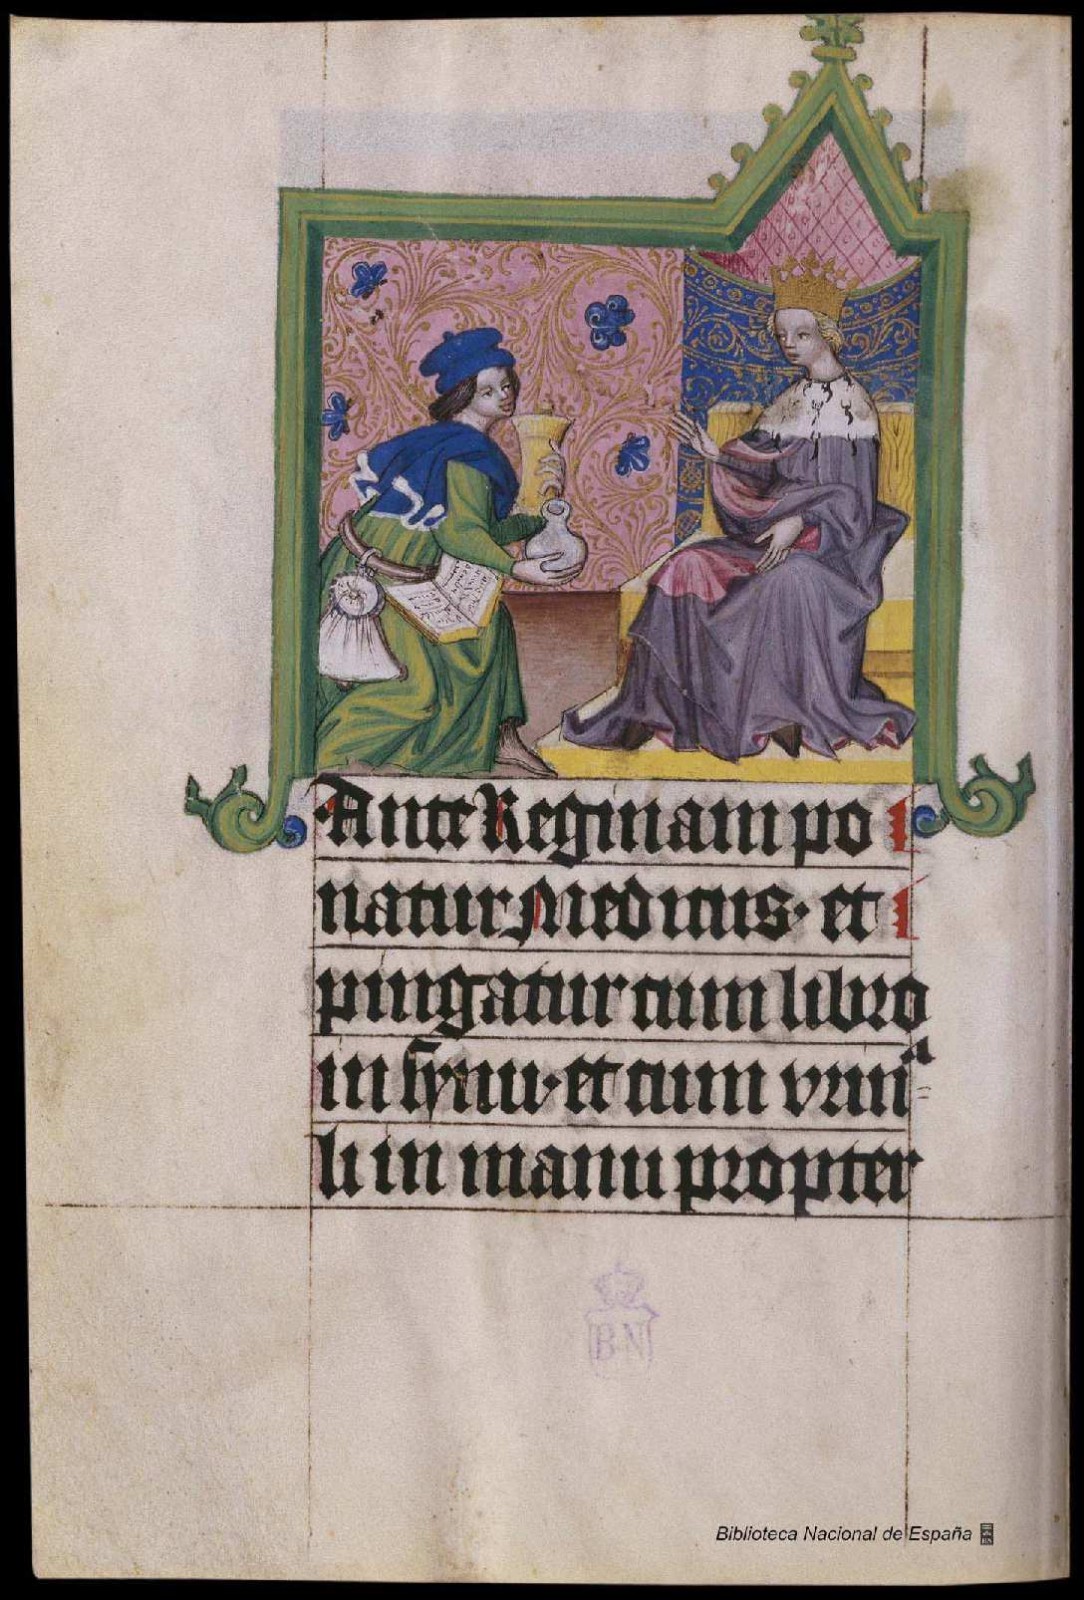 Ante Reginam po
natur Medicus· et
pingatur cum libro
in synu· et cum vrinª
li in manu propter
BN
Biblioteca Nacional de España